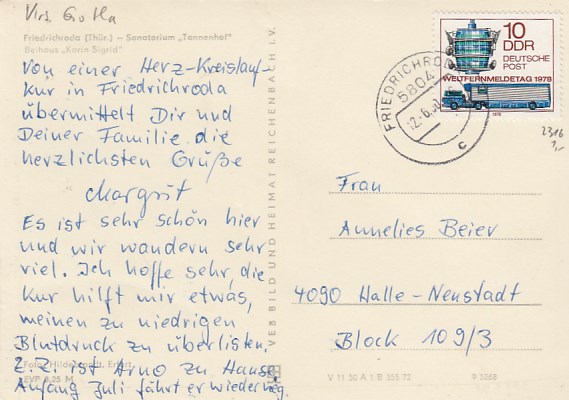 Krs. Gotha
Friedrichroda (Thür.) – Sanatorium „Tannenhof“
Bettenhaus „Karin Sigrid“
Von einer Herz-Kreislauf-
kur in Friedrichroda
übermittelt Dir und
Deiner Familie die
herzlichsten Grüße
Margrit
Es ist sehr schön hier
und wir wandern sehr
viel. Ich hoffe sehr, die
Kur hilft mir etwas,
meinen zu niedrigen
Blutdruck zu überlisten.
Z. Z. ist Arno zu Hause
Anfang Juli fährt er wieder weg.
EVP 0,25 M
VEB BILD UND HEIMAT REICHENBACH I. V.
10
DDR
DEUTSCHE
POST
WELTFERNMELDETAG 1978
1978
FRIEDRICHRODA
5804
c
2316
1,-
Frau
Annelies Beier
4090 Halle-Neustadt
Block 109/3
V 11 50 A 1/B 355 72